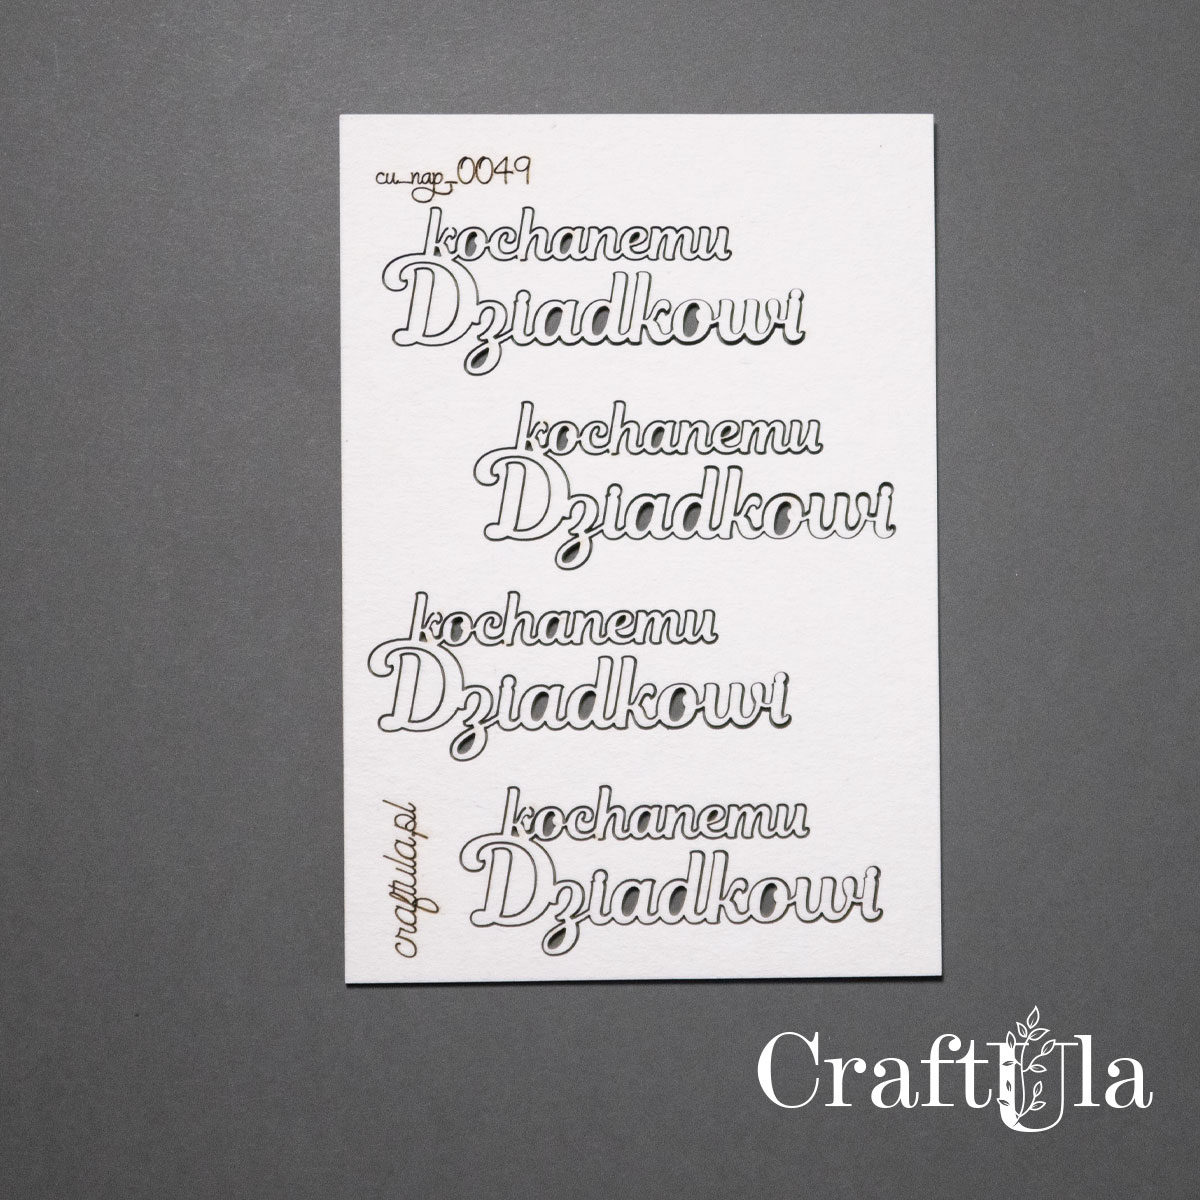 cu_nap_0049
kochanemu
Dziadkowi
kochanemu
Dziadkowi
kochanemu
Dziadkowi
kochanemu
Dziadkowi
craftula.pl
CraftUla